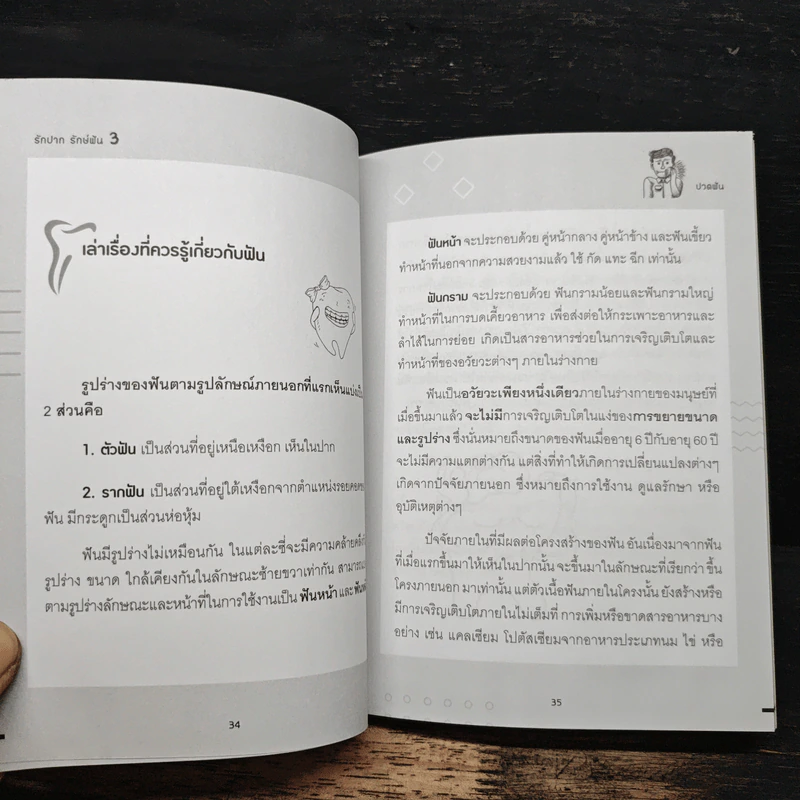 รักปาก รักษ์ฟัน 3
เล่าเรื่องที่ควรรู้เกี่ยวกับฟัน
รูปร่างของฟันตามรูปลักษณ์ภายนอกที่แรกเห็นแบ่งเป็น
2 ส่วนคือ
1. ตัวฟัน เป็นส่วนที่อยู่เหนือเหงือก เห็นในปาก
2. รากฟัน เป็นส่วนที่อยู่ใต้เหงือกจากตำแหน่งรอยคอ
ฟัน มีกระดูกเป็นส่วนห่อหุ้ม
ฟันมีรูปร่างไม่เหมือนกัน ในแต่ละซี่จะมีความคล้าย
รูปร่าง ขนาด ใกล้เคียงกันในลักษณะซ้ายขวาเท่ากัน
ตามรูปร่างลักษณะและหน้าที่ในการใช้งานเป็น ฟันหน้า และ
34
ปวดฟัน
ฟันหน้า จะประกอบด้วย คู่หน้ากลาง คู่หน้าข้าง และฟันเขี้ยว
ทำหน้าที่นอกจากความสวยงามแล้ว ใช้ กัด แทะ ฉีก เท่านั้น
ฟันกราม จะประกอบด้วย ฟันกรามน้อยและฟันกรามใหญ่
ทำหน้าที่ในการบดเคี้ยวอาหาร เพื่อส่งต่อให้กระเพาะอาหารและ
ลำไส้ในการย่อย เกิดเป็นสารอาหารช่วยในการเจริญเติบโตและ
ทำหน้าที่ของอวัยวะต่างๆ ภายในร่างกาย
ฟันเป็นอวัยวะเพียงหนึ่งเดียวภายในร่างกายของมนุษย์ที่
เมื่อขึ้นมาแล้ว จะไม่มีการเจริญเติบโตในแง่ของการขยายขนาด
และรูปร่าง ซึ่งนั่นหมายถึงขนาดของฟันเมื่ออายุ 6 ปีกับอายุ 60 ปี
จะไม่มีความแตกต่างกัน แต่สิ่งที่ทำให้เกิดการเปลี่ยนแปลงต่างๆ
เกิดจากปัจจัยภายนอก ซึ่งหมายถึงการใช้งาน ดูแลรักษา หรือ
อุบัติเหตุต่างๆ
ปัจจัยภายในที่มีผลต่อโครงสร้างของฟัน อันเนื่องมาจากฟัน
ที่เมื่อแรกขึ้นมาให้เห็นในปากนั้น จะขึ้นมาในลักษณะที่เรียกว่า ขึ้น
โครงภายนอก มาเท่านั้น แต่ตัวเนื้อฟันภายในโครงนั้น ยังสร้างหรือ
มีการเจริญเติบโตภายในไม่เต็มที่ การเพิ่มหรือขาดสารอาหารบาง
อย่าง เช่น แคลเซียม โปตัสเซียมจากอาหารประเภทนม ไข่ หรือ
35